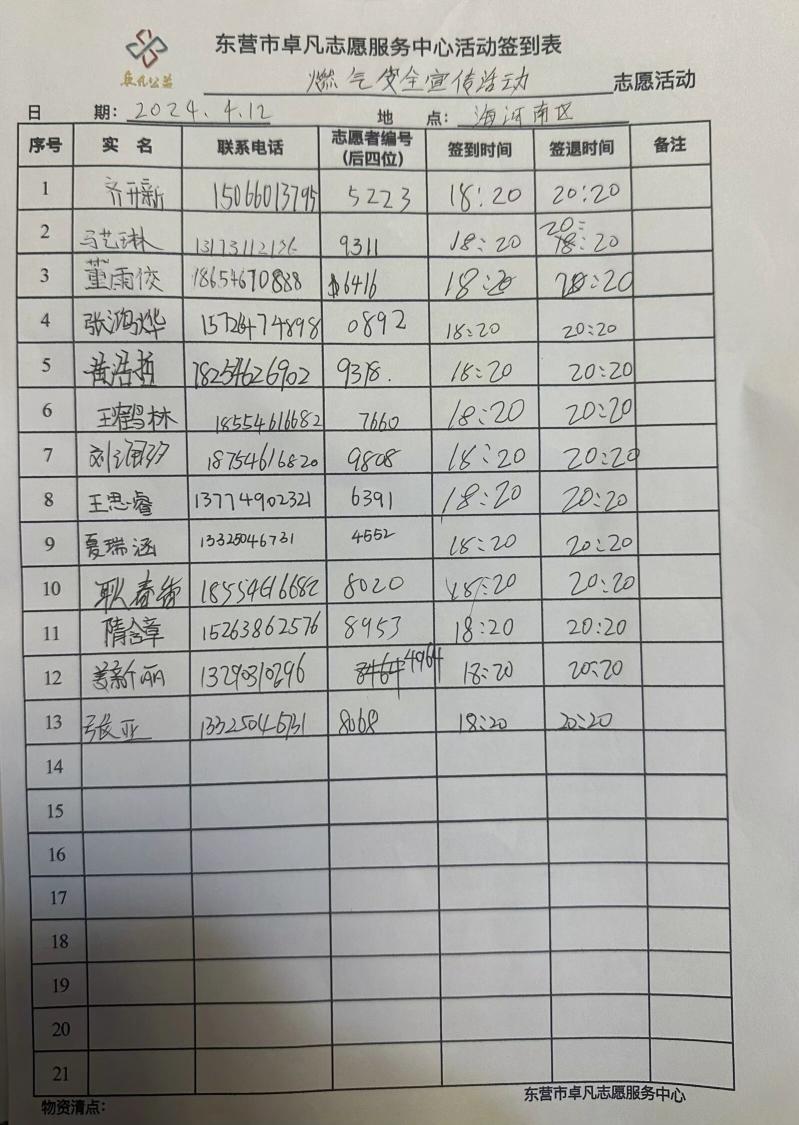 卓凡公益
东营市卓凡志愿服务中心活动签到表
燃气安全宣传活动 志愿活动
日 期: 2024.4.12 地 点: 海河南区
序号 实 名 联系电话 志愿者编号(后四位) 签到时间 签退时间 备注
1 齐开新 15066013795 5223 18:20 20:20
2 马艺琳 9311 18:20 20:20
3 董雨佼 18654670888 6416 18:20 20:20
4 张鸿烨 15726474898 0892 18:20 20:20
5 黄浩哲 18254626902 9378. 18:20 20:20
6 王鹤林 18554616682 7660 18:20 20:20
7 18754616820 9808 18:20 20:20
8 王思睿 13774902321 6391 18:20 20:20
9 夏瑞涵 13325046731 4552 18:20 20:20
10 耿春 18554616682 8020 18:20 20:20
11 隋鑫章 15263862576 8953 18:20 20:20
12 姜新丽 13290310296 4964 18:20 20:20
13 张亚 13325046731 8068 18:20 20:20
14
15
16
17
18
19
20
21
物资清点: 东营市卓凡志愿服务中心